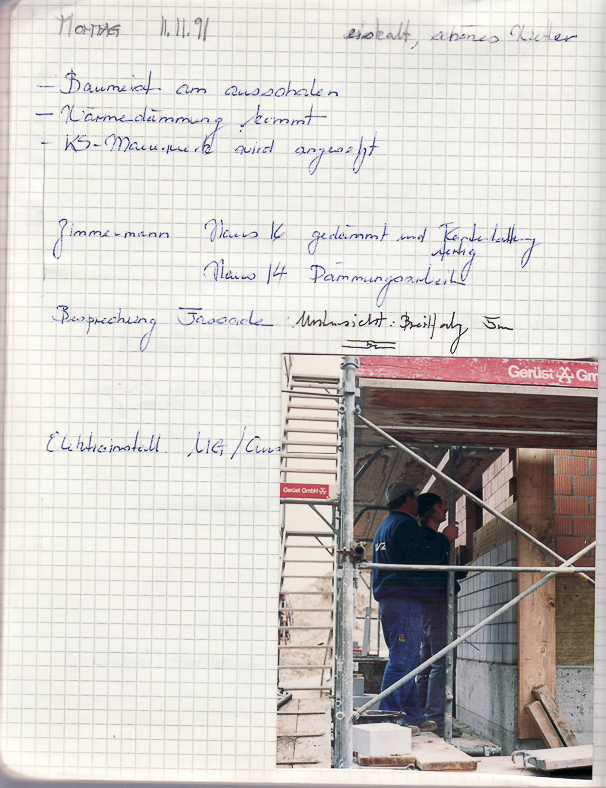 MONTAG 11.11.91 eiskalt, schönes Wetter
– Baumeist am ausschalen
– Wärmedämmung kommt
– KS-Mauerwerk wird angesetzt
Zimmermann Haus 16 gedämmt und Konterlattung
fertig
Haus 14 Dämmungsarbeit
Besprechung Fassade : Untersicht: Breitfalz 5m
Elektroinstall. UG /
Gerüst Gm
Gerüst GmbH